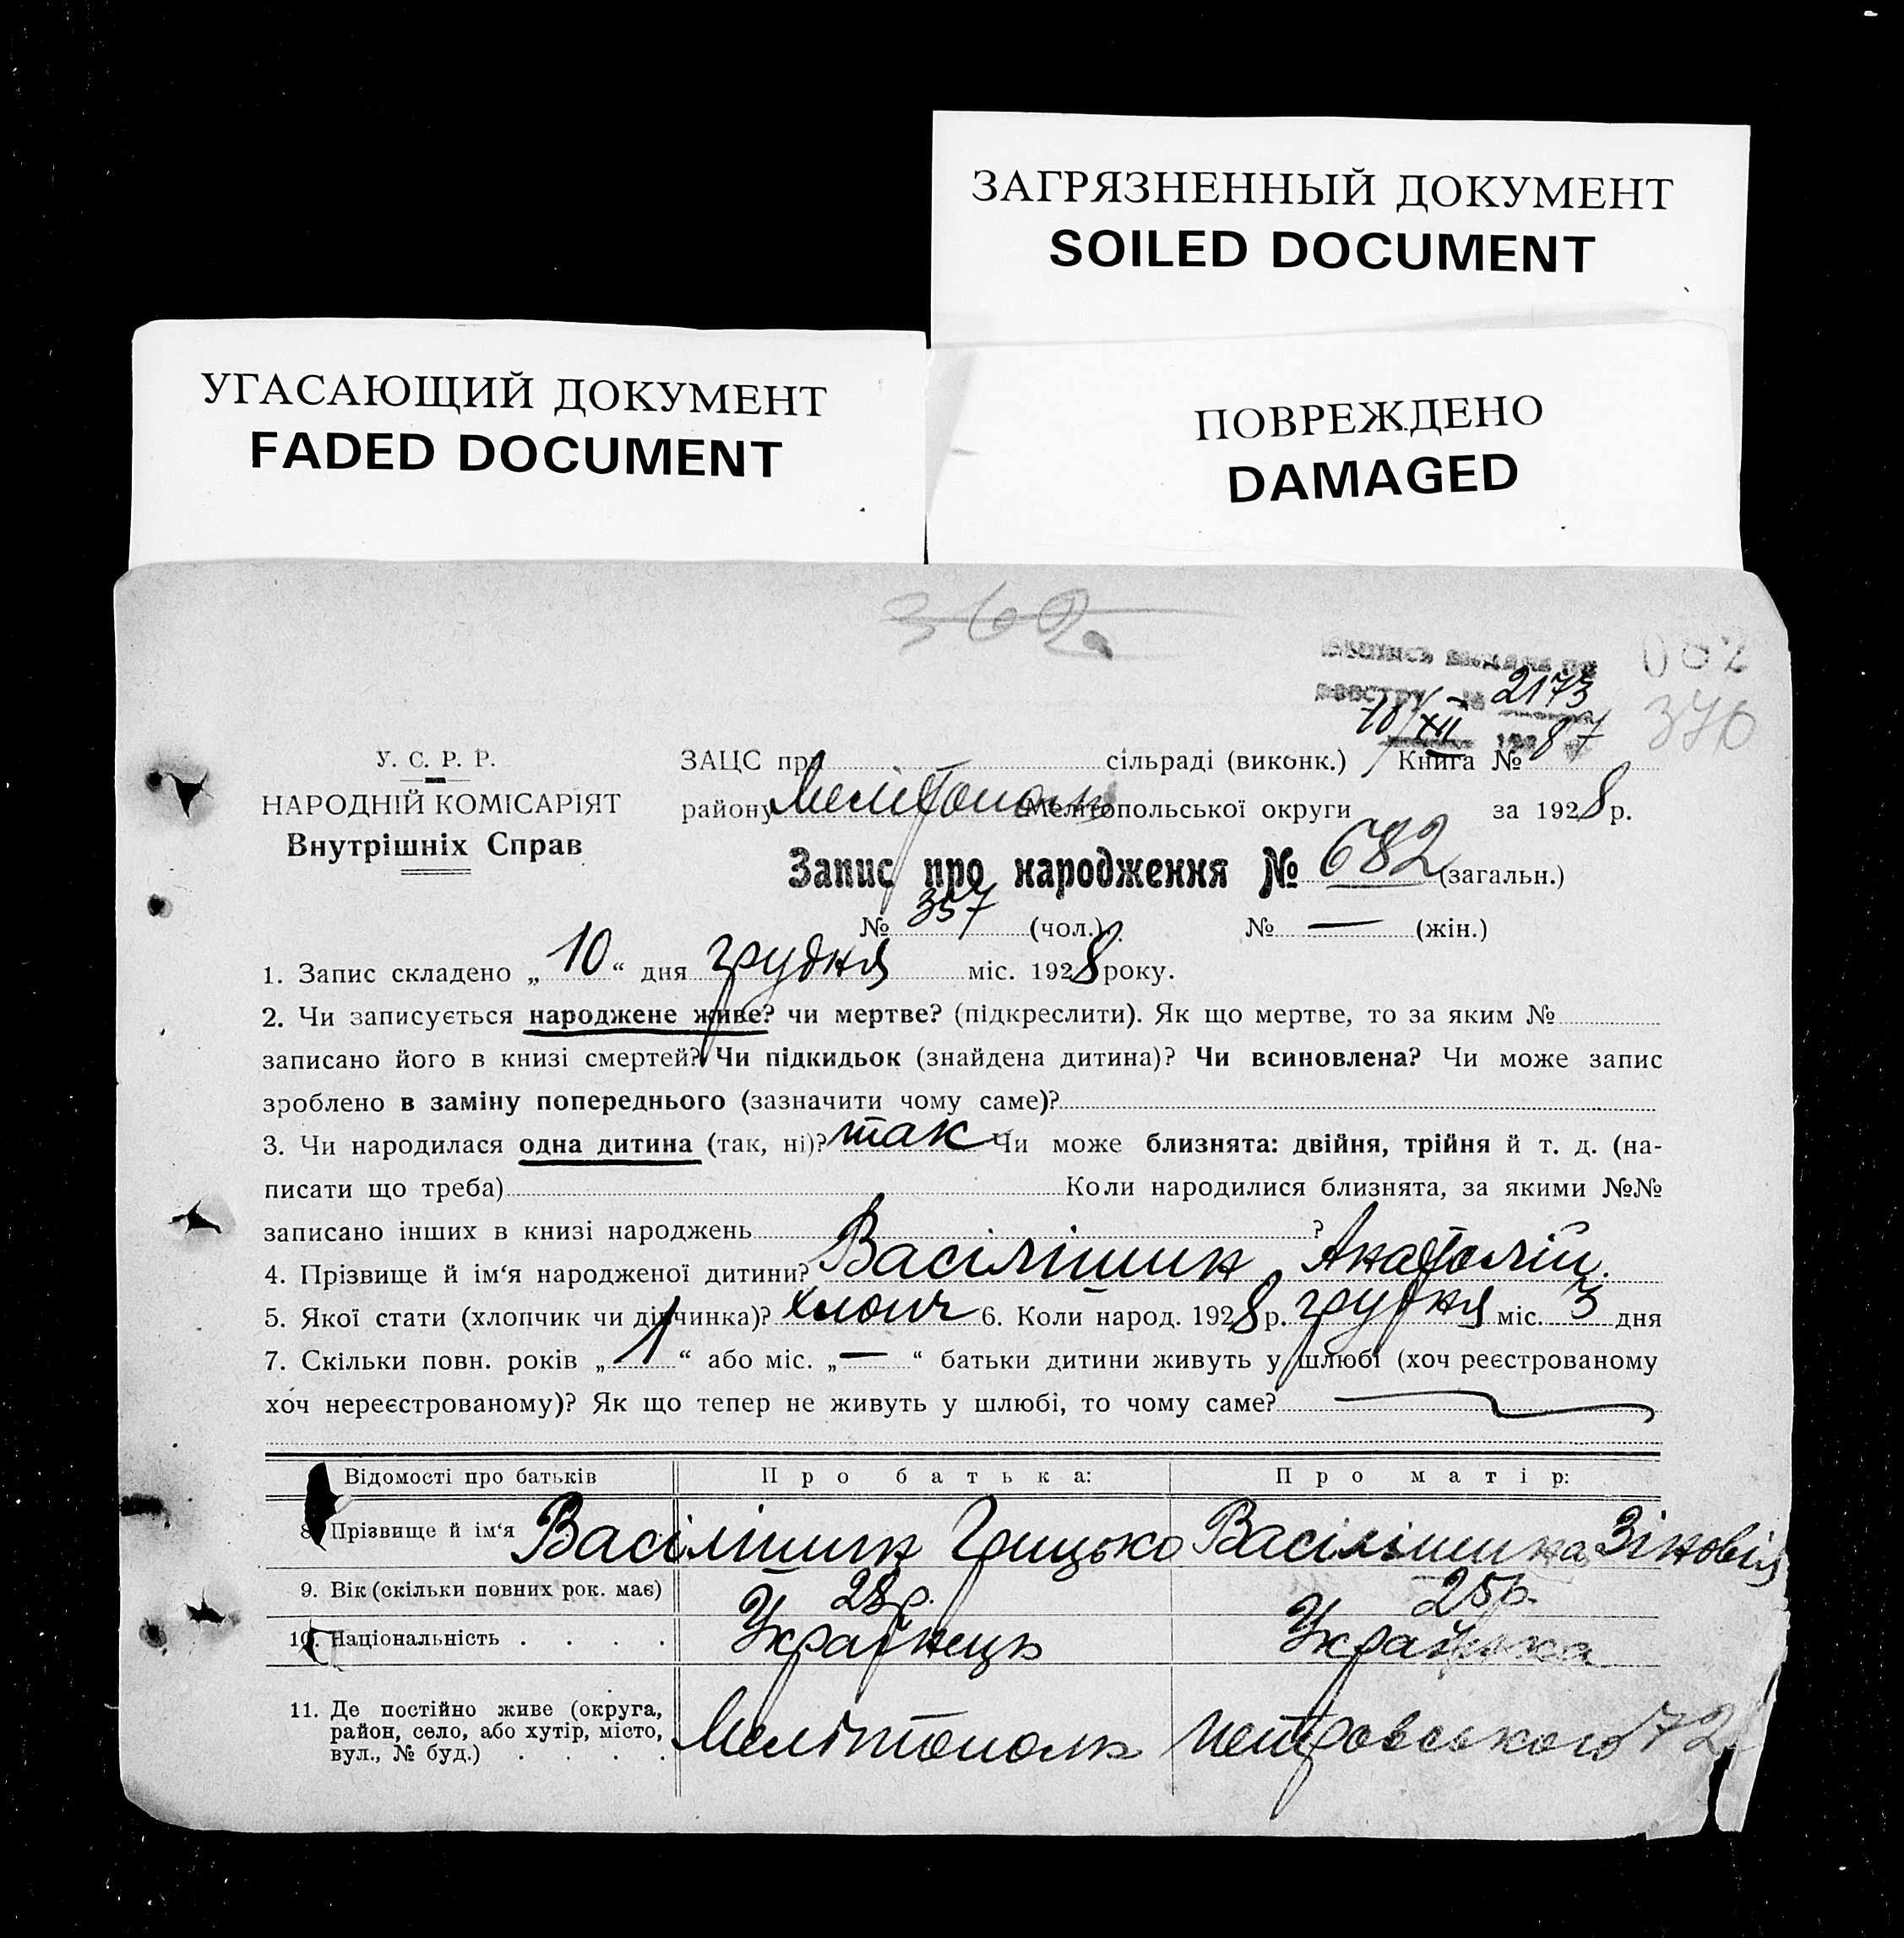 ЗАГРЯЗНЕННЫЙ ДОКУМЕНТ
SOILED DOCUMENT
УГАСАЮЩИЙ ДОКУМЕНТ
FADED DOCUMENT
ПОВРЕЖДЕНО
DAMAGED
362
2173
376
10/XII 87
У. С. Р. Р.
НАРОДНІЙ КОМІСАРІЯТ
Внутрішніх Справ
ЗАЦС при сільраді (виконк.) Книга №
району Мелітополь Мелітопольської округи за 1928 р.
Запис про народження № 682 (загальн.)
№ 357 (чол.) № — (жін.)
1. Запис складено „ 10 “ дня грудня міс. 1928 року.
2. Чи записується народжене живе? чи мертве? (підкреслити). Як що мертве, то за яким №
записано його в книзі смертей? Чи підкидьок (знайдена дитина)? Чи всиновлена? Чи може запис
зроблено в заміну попереднього (зазначити чому саме)?
3. Чи народилася одна дитина (так, ні)? так Чи може близнята: двійня, трійня й т. д. (на-
писати що треба) Коли народилися близнята, за якими №№
записано інших в книзі народжень ?
4. Прізвище й ім‘я народженої дитини? Васілішин Анатолій.
5. Якої стати (хлопчик чи дівчинка)? хлопч 6. Коли народ. 1928 р. грудня міс. 3 дня
7. Скільки повн. років „ 1 “ або міс. „ — “ батьки дитини живуть у шлюбі (хоч реєстрованому
хоч нереєстрованому)? Як що тепер не живуть у шлюбі, то чому саме?
Відомості про батьків Про батька: Про матір:
8. Прізвище й ім‘я Васілішин Грицько Васілішина Зіновія
9. Вік (скільки повних рок. має) 28 р. 25 р.
10. Національність . . . . Українець Українка
11. Де постійно живе (округа,
район, село, або хутір, місто,
вул., № буд.) . . . . Мелітополь Петровського 72